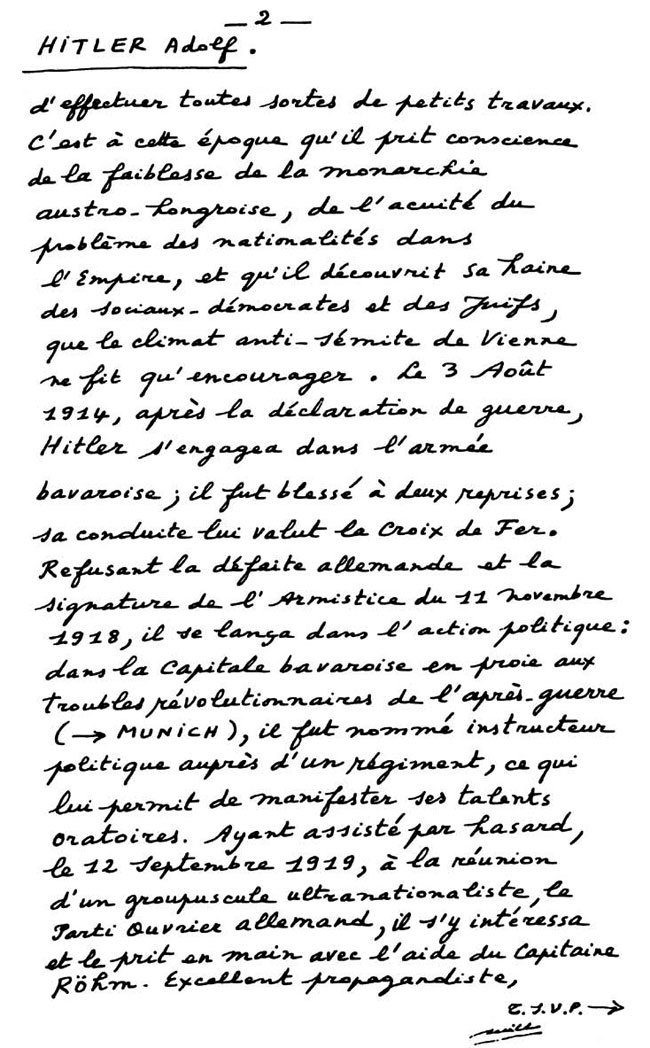 — 2 —
HITLER Adolf.
d'effectuer toutes sortes de petits travaux.
C'est à cette époque qu'il prit conscience
de la faiblesse de la monarchie
austro-hongroise, de l'acuité du
problème des nationalités dans
l'Empire, et qu'il découvrit sa haine
des sociaux-démocrates et des Juifs,
que le climat anti-sémite de Vienne
ne fit qu'encourager. Le 3 Août
1914, après la déclaration de guerre,
Hitler s'engagea dans l'armée
bavaroise ; il fut blessé à deux reprises ;
sa conduite lui valut la Croix de Fer.
Refusant la défaite allemande et la
signature de l'Armistice du 11 novembre
1918, il se lança dans l'action politique :
dans la Capitale bavaroise en proie aux
troubles révolutionnaires de l'après-guerre
(→ MUNICH), il fut nommé instructeur
politique auprès d'un régiment, ce qui
lui permit de manifester ses talents
oratoires. Ayant assisté par hasard,
le 12 Septembre 1919, à la réunion
d'un groupuscule ultranationaliste, le
Parti Ouvrier allemand, il s'y intéressa
et le prit en main avec l'aide du Capitaine
Röhm. Excellent propagandiste,
T.S.V.P. →